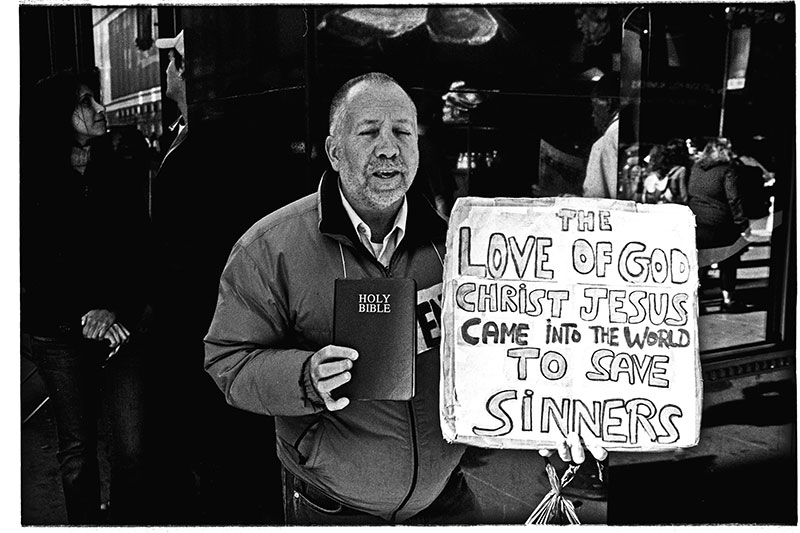 HOLY
BIBLE
THE
LOVE OF GOD
CHRIST JESUS
CAME INTO THE WORLD
TO SAVE
SINNERS